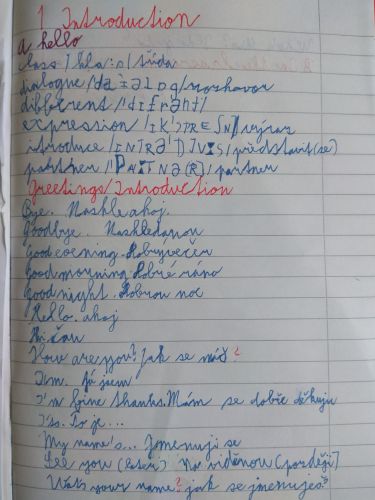 1 Introduction
a hello
class / kla:s / třída
dialogue / daiəlog / rozhovor
different / 'difrənt /
expression / IK'spreʃn / výraz
introduce / Intrə'djuːs / představit (se)
partner / 'pɑːtnə(r) / partner
Greetings/Introduction
Bye. Nashleahoj.
Goodbye. Nashledanou
Good evening. Dobrývečer
Good morning. Dobré ráno
Good night. Dobrou noc
Hello. ahoj
Hi čau
How are you? Jak se máš?
I'm. Já jsem
I'm fine thanks. Mám se dobře děkuju
I's. To je ...
My name's... Jmenuji se
See you (later) Na viděnou (později)
What's your name? jak se jmenuješ?